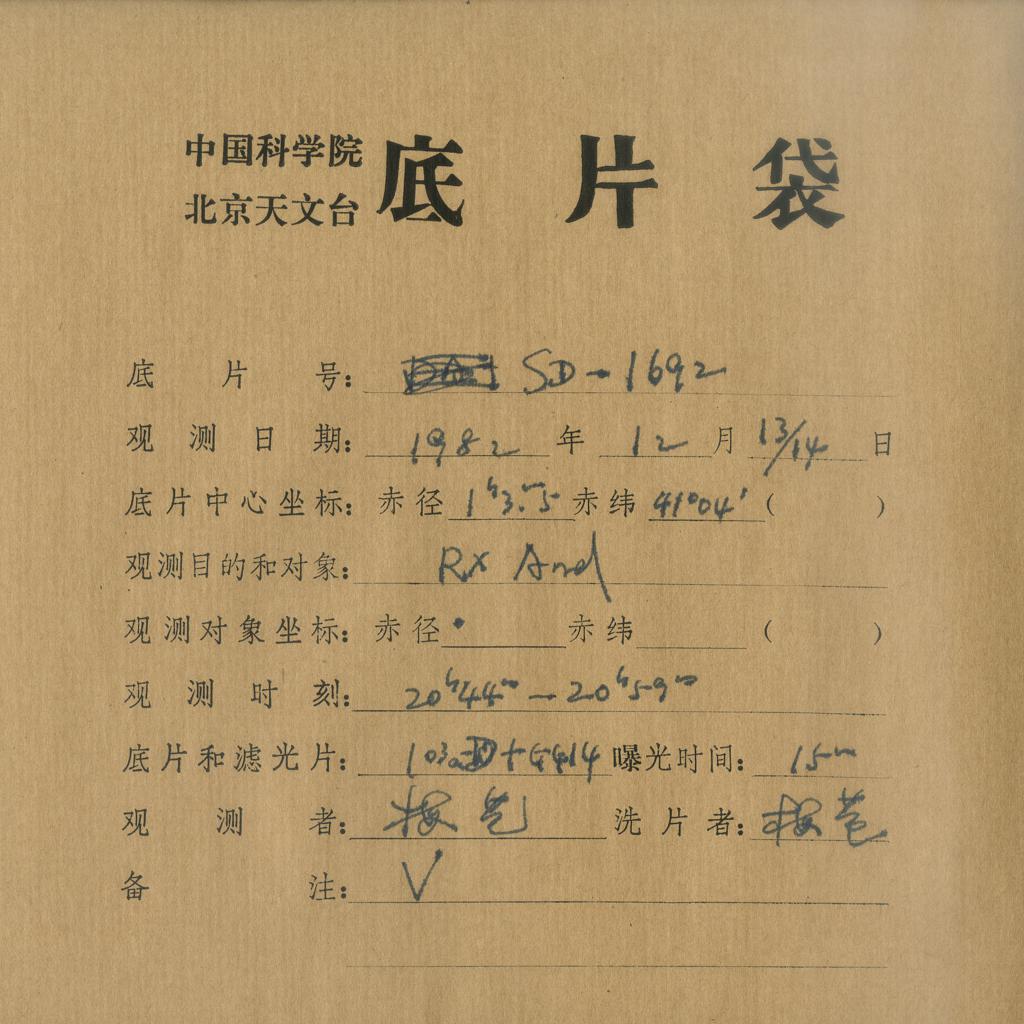 中国科学院
北京天文台 底片袋
底片号: SD-1692
观测日期: 1982年12月13/14日
底片中心坐标: 赤径 1h3m.5 赤纬 41°04′ ( )
观测目的和对象: RX And
观测对象坐标: 赤径 赤纬 ( )
观测时刻: 20h44m—20h59m
底片和滤光片: 103aD+GG14 曝光时间: 15m
观测者: 梅苞 洗片者: 梅苞
备注: V